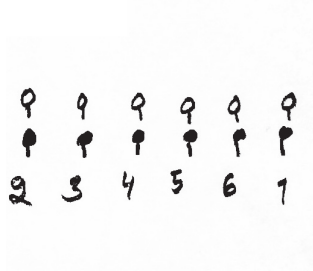 2 3 4 5 6 7